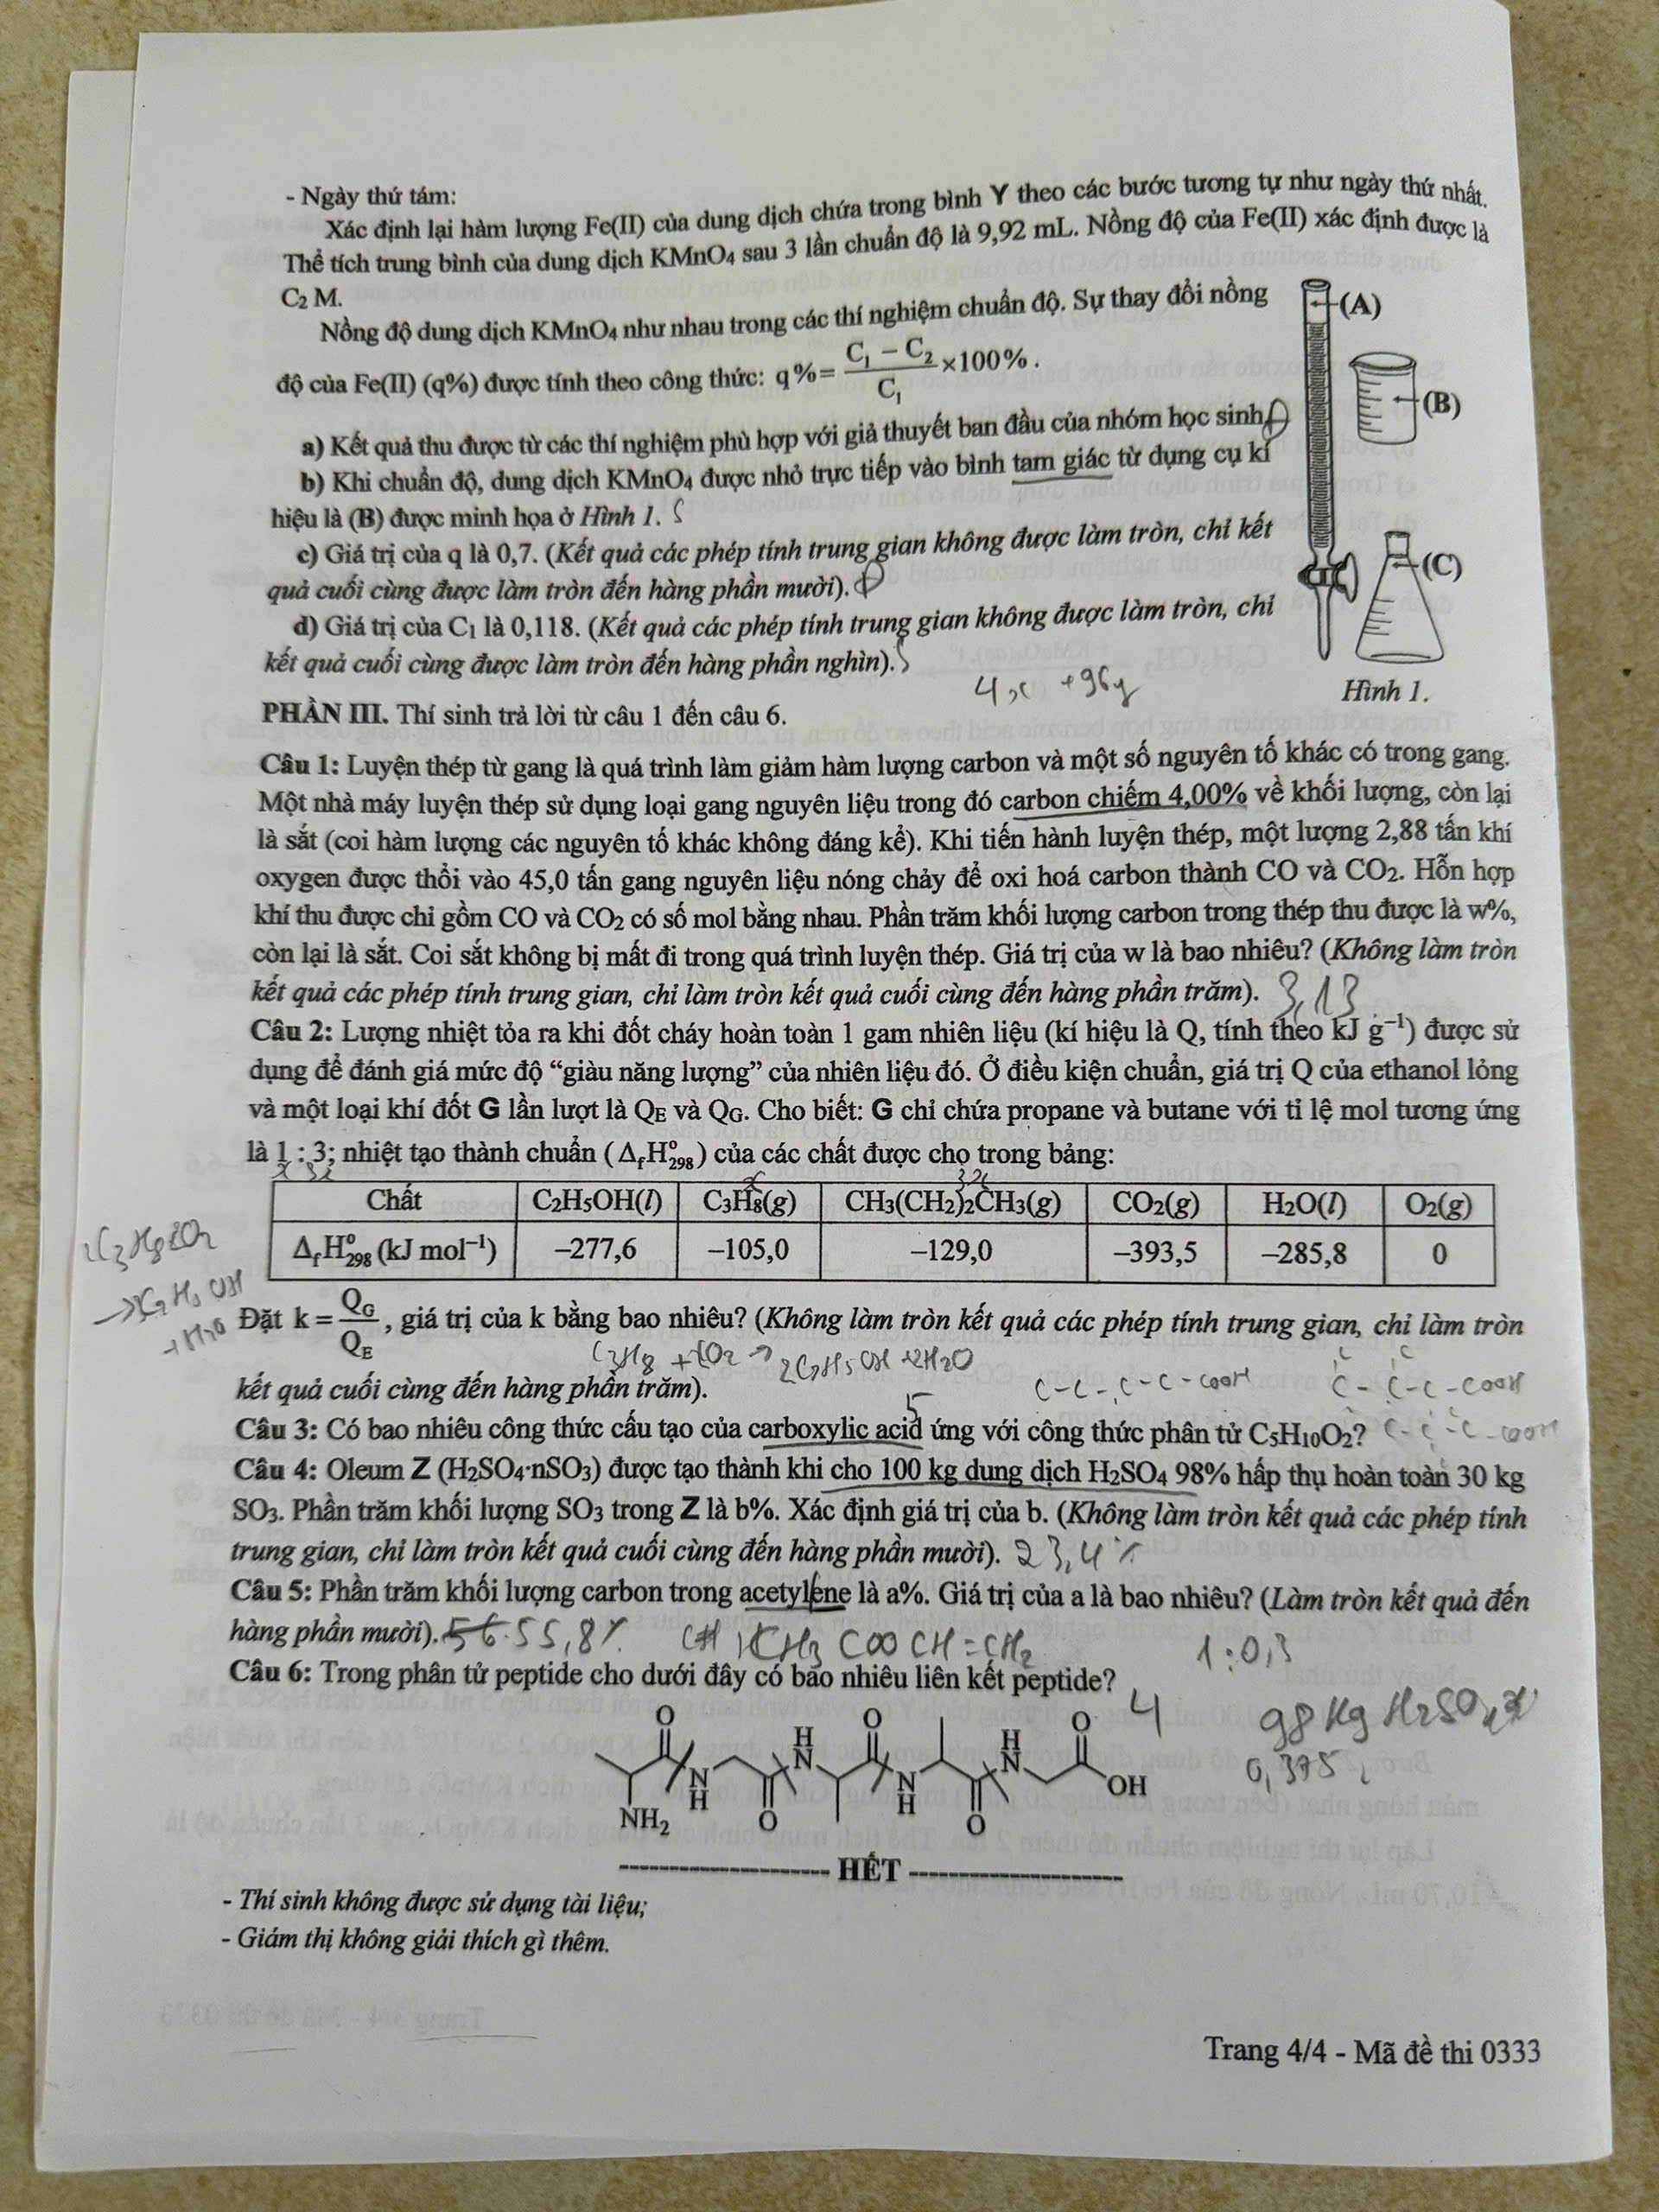 - Ngày thứ tám:
Xác định lại hàm lượng Fe(II) của dung dịch chứa trong bình Y theo các bước tương tự như ngày thứ nhất.
Thể tích trung bình của dung dịch KMnO₄ sau 3 lần chuẩn độ là 9,92 mL. Nồng độ của Fe(II) xác định được là
C₂ M.
Nồng độ dung dịch KMnO₄ như nhau trong các thí nghiệm chuẩn độ. Sự thay đổi nồng
độ của Fe(II) (q%) được tính theo công thức: q% = (C₁ − C₂)/C₁ ×100% .
a) Kết quả thu được từ các thí nghiệm phù hợp với giả thuyết ban đầu của nhóm học sinh. Đ
b) Khi chuẩn độ, dung dịch KMnO₄ được nhỏ trực tiếp vào bình tam giác từ dụng cụ kí
hiệu là (B) được minh họa ở Hình 1. S
c) Giá trị của q là 0,7. (Kết quả các phép tính trung gian không được làm tròn, chỉ kết
quả cuối cùng được làm tròn đến hàng phần mười). Đ
d) Giá trị của C₁ là 0,118. (Kết quả các phép tính trung gian không được làm tròn, chỉ
kết quả cuối cùng được làm tròn đến hàng phần nghìn). S
(A)
(B)
(C)
Hình 1.
4x +96y
PHẦN III. Thí sinh trả lời từ câu 1 đến câu 6.
Câu 1: Luyện thép từ gang là quá trình làm giảm hàm lượng carbon và một số nguyên tố khác có trong gang.
Một nhà máy luyện thép sử dụng loại gang nguyên liệu trong đó carbon chiếm 4,00% về khối lượng, còn lại
là sắt (coi hàm lượng các nguyên tố khác không đáng kể). Khi tiến hành luyện thép, một lượng 2,88 tấn khí
oxygen được thổi vào 45,0 tấn gang nguyên liệu nóng chảy để oxi hoá carbon thành CO và CO₂. Hỗn hợp
khí thu được chỉ gồm CO và CO₂ có số mol bằng nhau. Phần trăm khối lượng carbon trong thép thu được là w%,
còn lại là sắt. Coi sắt không bị mất đi trong quá trình luyện thép. Giá trị của w là bao nhiêu? (Không làm tròn
kết quả các phép tính trung gian, chỉ làm tròn kết quả cuối cùng đến hàng phần trăm). 3,13
Câu 2: Lượng nhiệt tỏa ra khi đốt cháy hoàn toàn 1 gam nhiên liệu (kí hiệu là Q, tính theo kJ g⁻¹) được sử
dụng để đánh giá mức độ “giàu năng lượng” của nhiên liệu đó. Ở điều kiện chuẩn, giá trị Q của ethanol lỏng
và một loại khí đốt G lần lượt là Q_E và Q_G. Cho biết: G chỉ chứa propane và butane với tỉ lệ mol tương ứng
là 1 : 3; nhiệt tạo thành chuẩn (Δ_fH°₂₉₈) của các chất được cho trong bảng:
x 3x x 3x
Chất C₂H₅OH(l) C₃H₈(g) CH₃(CH₂)₂CH₃(g) CO₂(g) H₂O(l) O₂(g)
Δ_fH°₂₉₈ (kJ mol⁻¹) –277,6 –105,0 –129,0 –393,5 –285,8 0
Đặt k = Q_G/Q_E , giá trị của k bằng bao nhiêu? (Không làm tròn kết quả các phép tính trung gian, chỉ làm tròn
kết quả cuối cùng đến hàng phần trăm).
C-C-C-C-COOH
5
Câu 3: Có bao nhiêu công thức cấu tạo của carboxylic acid ứng với công thức phân tử C₅H₁₀O₂?
Câu 4: Oleum Z (H₂SO₄·nSO₃) được tạo thành khi cho 100 kg dung dịch H₂SO₄ 98% hấp thụ hoàn toàn 30 kg
SO₃. Phần trăm khối lượng SO₃ trong Z là b%. Xác định giá trị của b. (Không làm tròn kết quả các phép tính
trung gian, chỉ làm tròn kết quả cuối cùng đến hàng phần mười). 23,4%
Câu 5: Phần trăm khối lượng carbon trong acetylene là a%. Giá trị của a là bao nhiêu? (Làm tròn kết quả đến
hàng phần mười). 56 55,8% CH3COOCH=CH2 1:0,3
Câu 6: Trong phân tử peptide cho dưới đây có bao nhiêu liên kết peptide?
4
98 Kg H2SO4
0,375
O H N O H N O
NH₂ N H O N H O OH
HẾT
- Thí sinh không được sử dụng tài liệu;
- Giám thị không giải thích gì thêm.
Trang 4/4 - Mã đề thi 0333